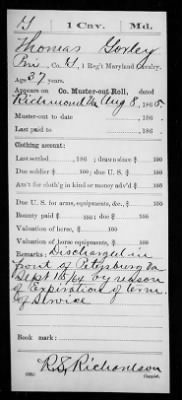 G | 1 Cav. | Md.
Thomas Goxley
Pvt., Co. G, 1 Reg't Maryland Cavalry.
Age 37 years.
Appears on Co. Muster-out Roll, dated
Richmond Va Aug 8, 1865.
Muster-out to date , 186 .
Last paid to , 186 .
Clothing account:
Last settled , 186 ; drawn since $ 100
Due soldier $ 100; due U. S. $ 100
Am't for cloth'g in kind or money adv'd $ 100
Due U. S. for arms, equipments, &c., $ 100
Bounty paid $ 100; due $ 100
Valuation of horse, $ 100
Valuation of horse equipments, $ 100
Remarks: Discharged in
front of Petersburg Va
Sept 15/64 by reason
of Expiration of term
of Service
Book mark:
R. S. Richardson
Copyist.